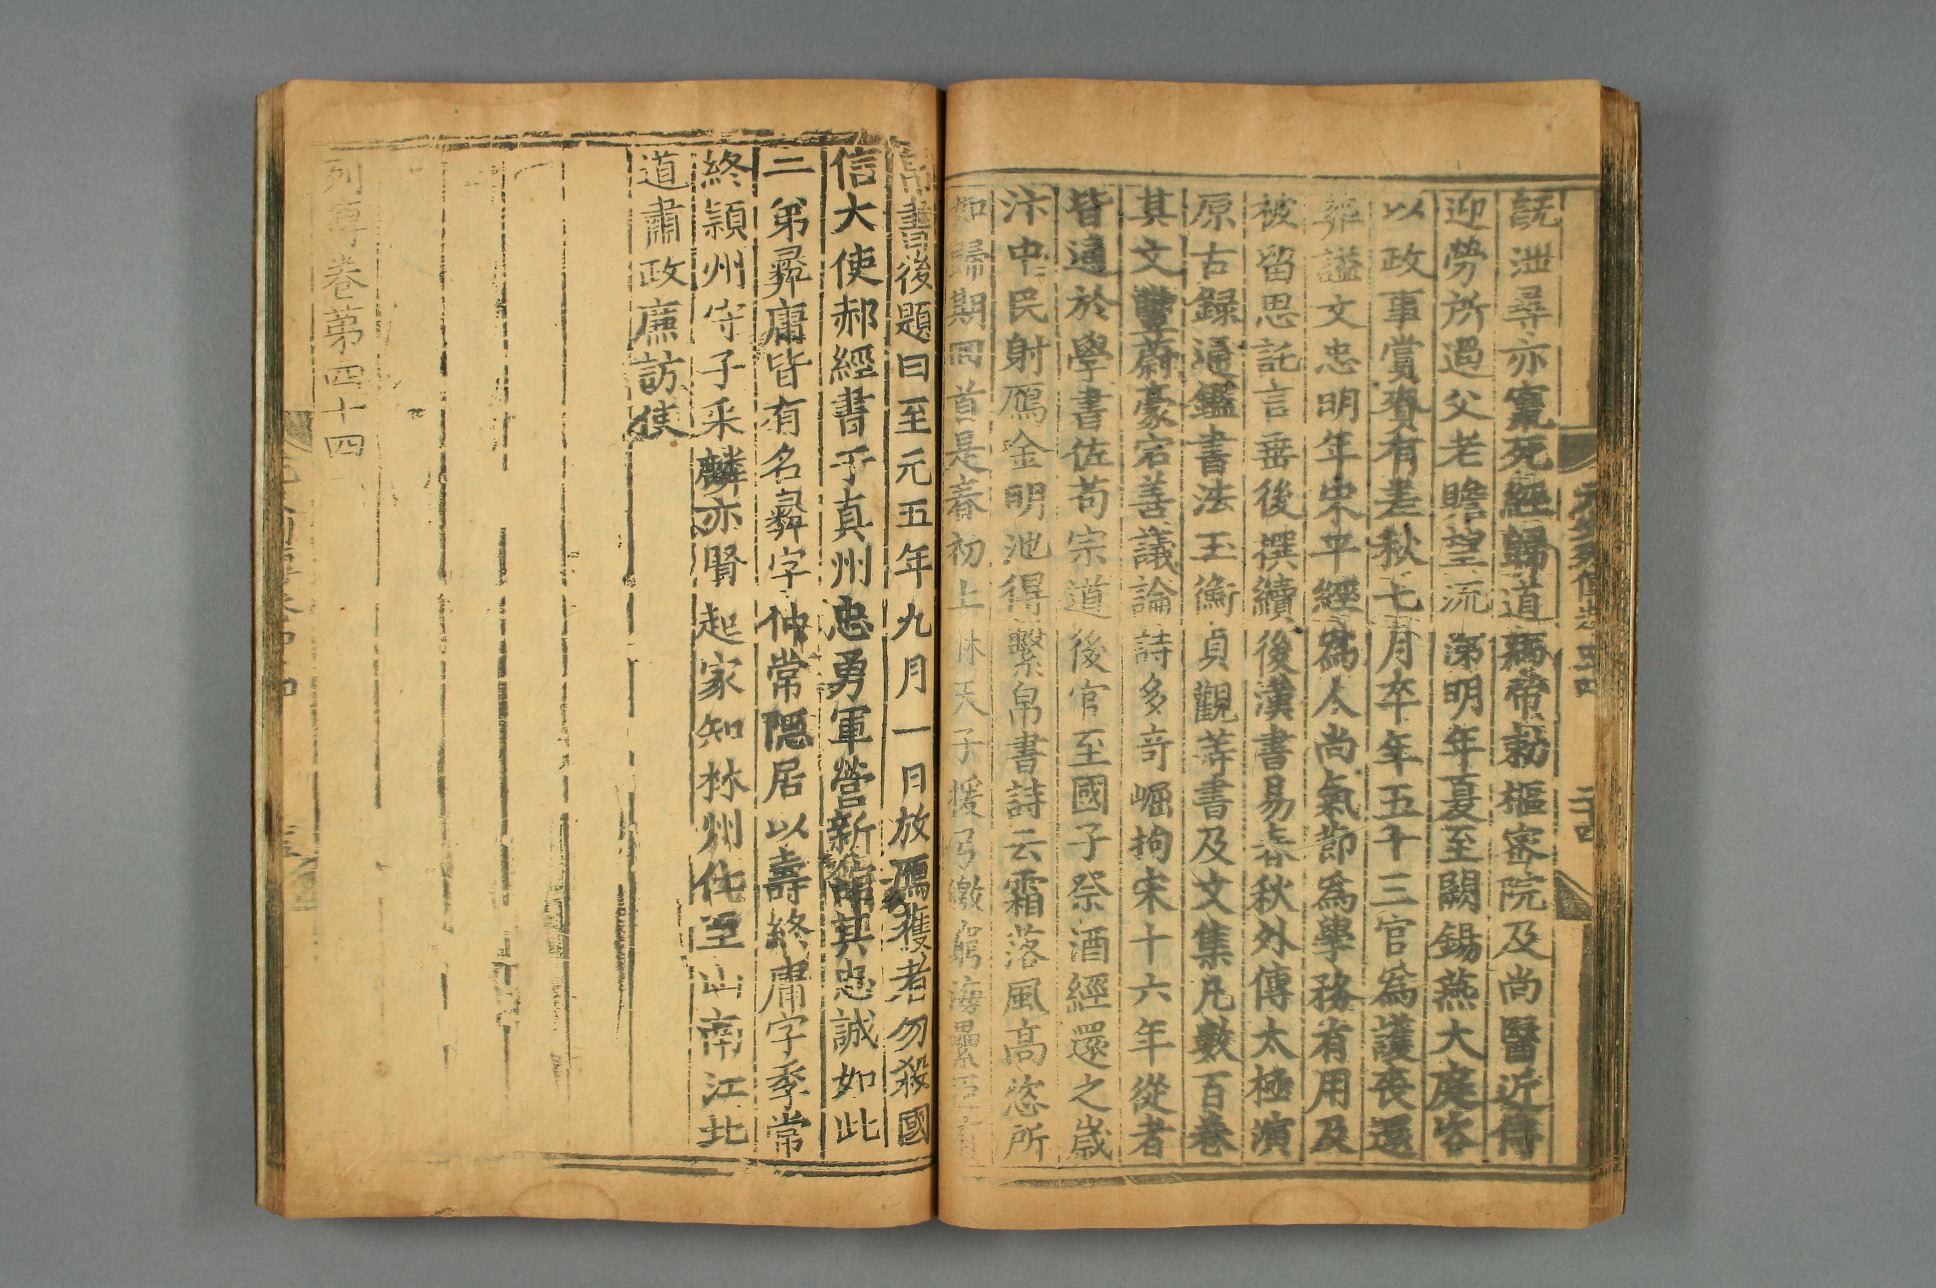 既泄尋亦竄死經歸道病帝勑樞密院及尚醫近侍
迎勞所過父老瞻望流涕明年夏至闕錫燕大庭咨
以政事賞賚有差秋七月卒年五十三官爲護喪還
葬謚文忠明年宋平經爲人尚氣節爲學務有用及
被留思託言垂後撰續後漢書易春秋外傳太極演
原古録通鑑書法玉衡貞觀等書及文集凡數百卷
其文豐蔚豪宕善議論詩多奇崛拘宋十六年從者
皆通於學書佐苟宗道後官至國子祭酒經還之歲
汴中民射鴈金明池得繫帛書詩云霜落風高恣所
如歸期回首是春初上林天子援弓繳窮海纍臣有
帛書後題曰至元五年九月一日放鴈獲者勿殺國
信大使郝經書于真州忠勇軍營新館其忠誠如此
二弟彞庸皆有名彞字仲常隱居以壽終庸字季常
終潁州守子采麟亦賢起家知林州仕至山南江北
道肅政廉訪使
列傳卷第四十四